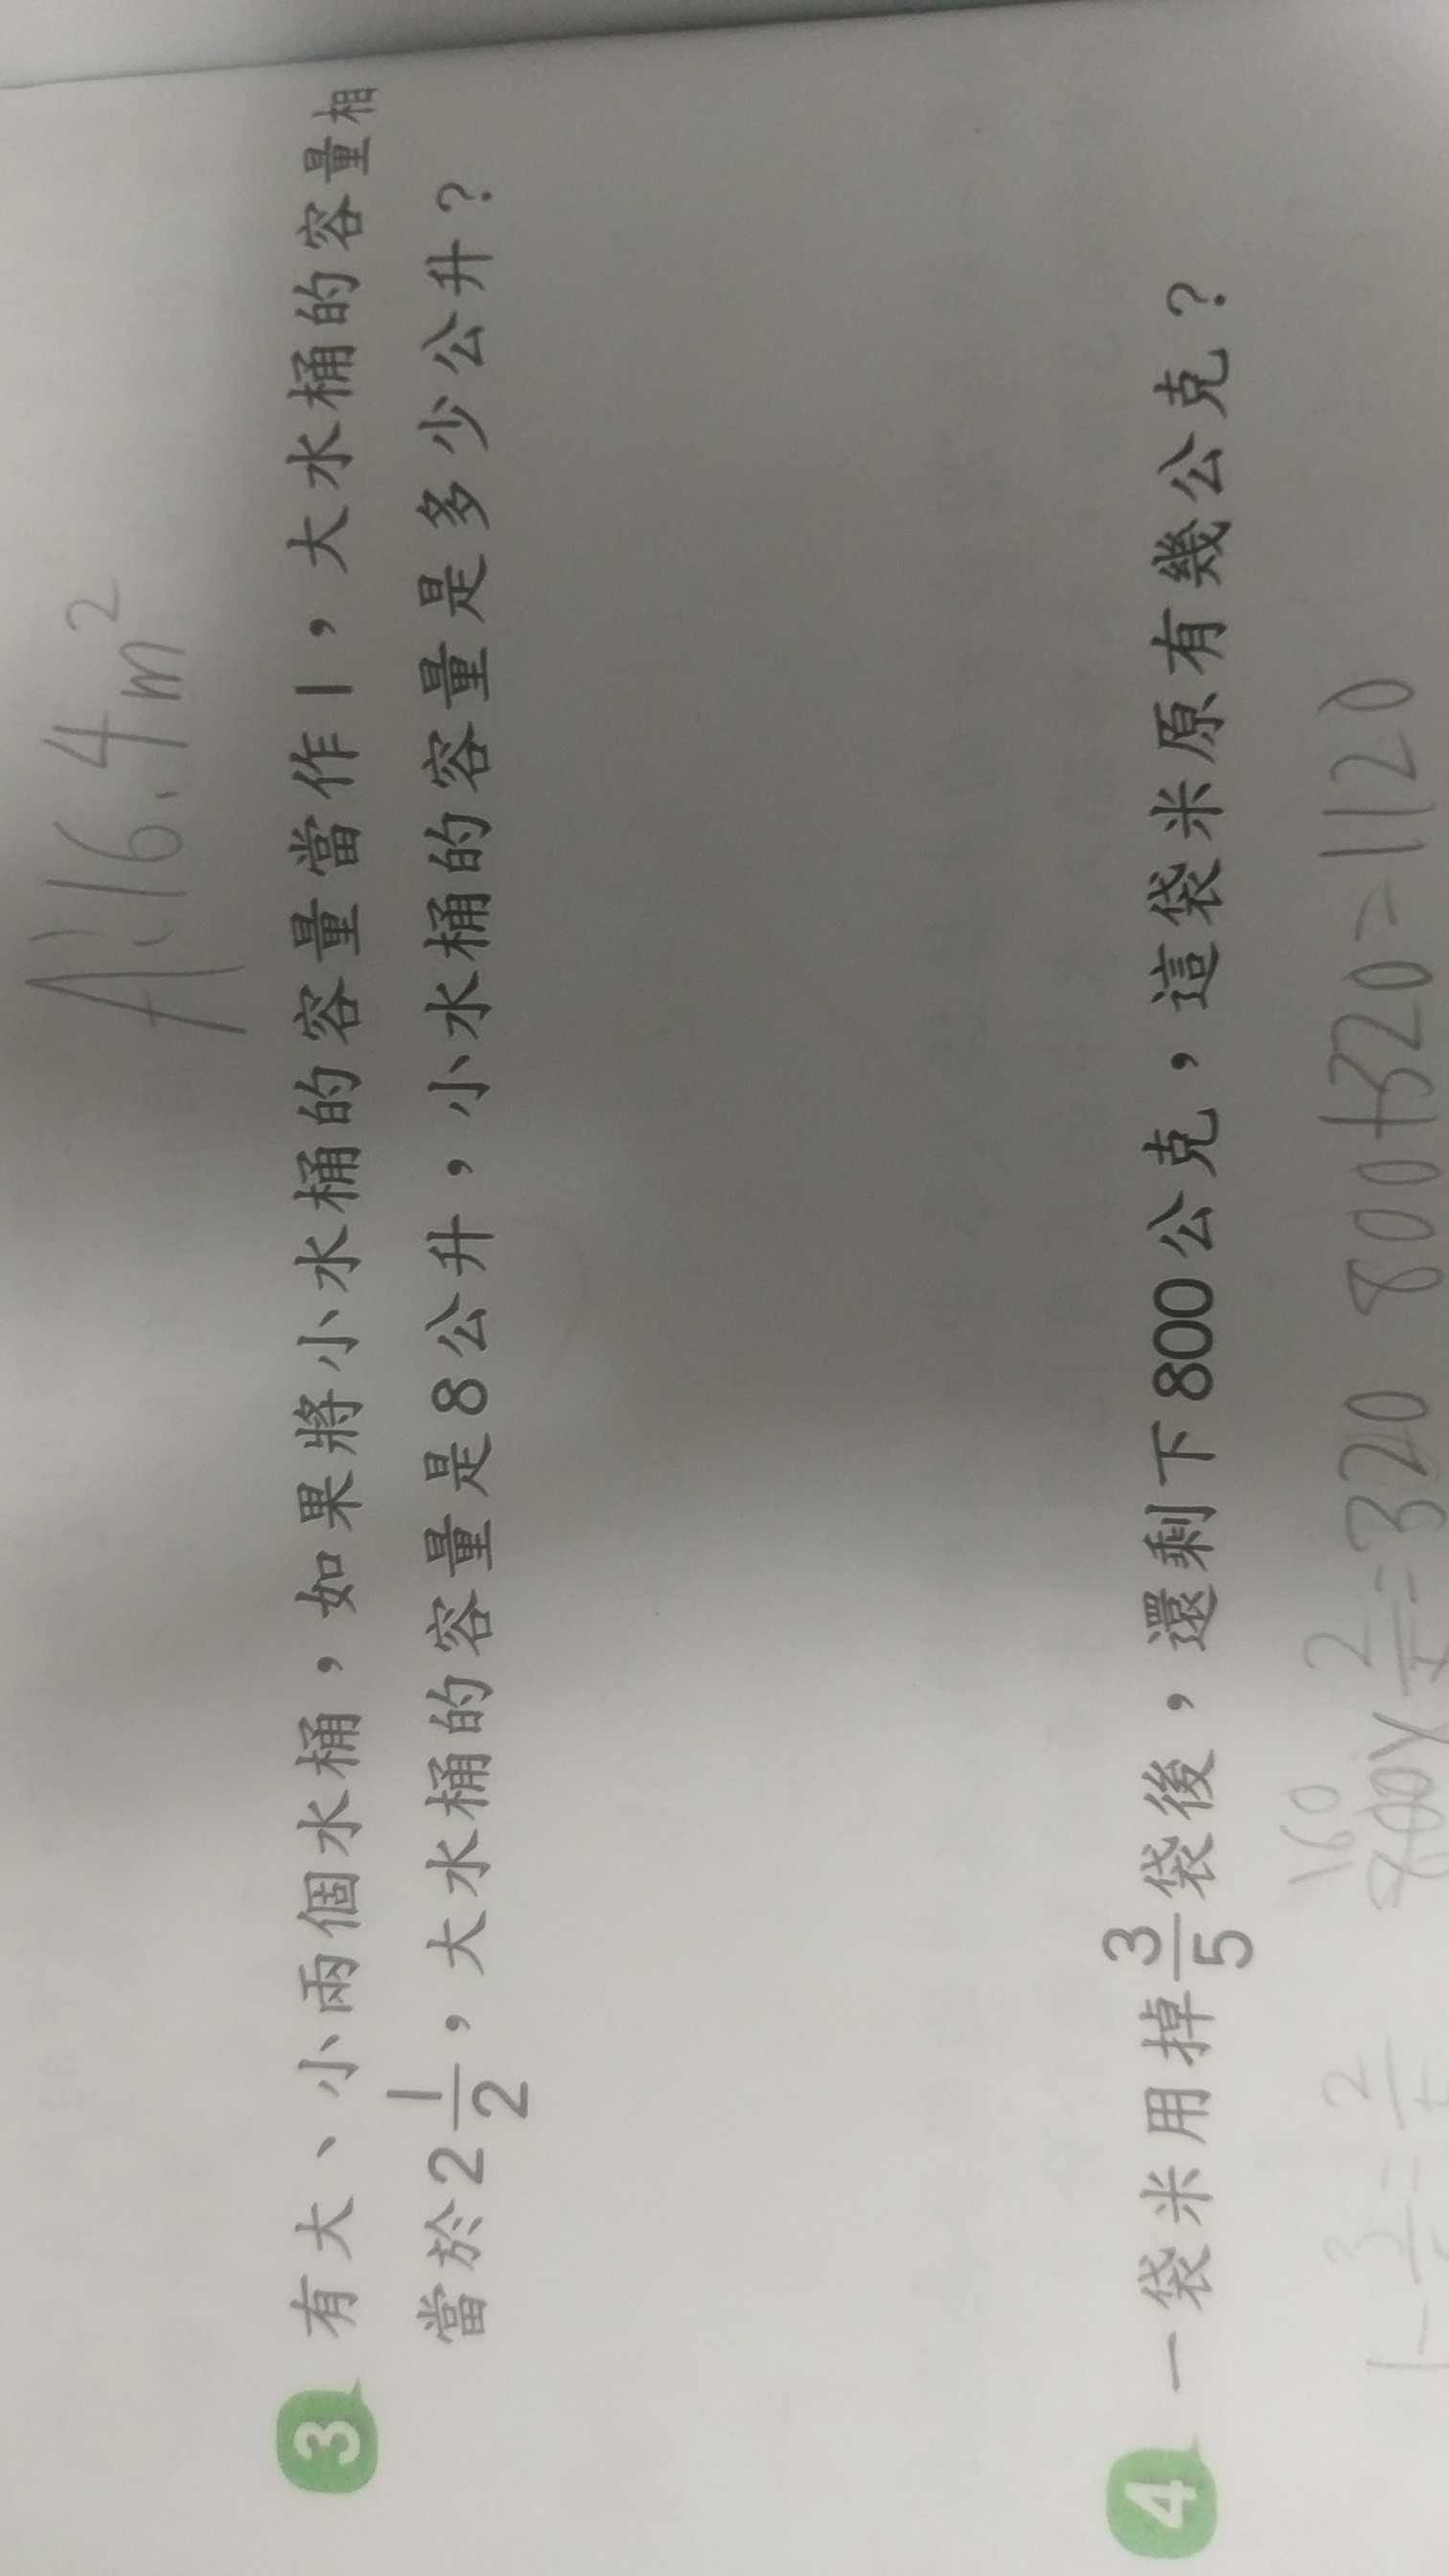 A:16.4m²
3 有大、小兩個水桶，如果將小水桶的容量當作1，大水桶的容量相
當於2 1/2，大水桶的容量是8公升，小水桶的容量是多少公升？
4 一袋米用掉3/5袋後，還剩下800公克，這袋米原有幾公克？
160
1-3/5=2/5 800×2/5=320 800+320=1120